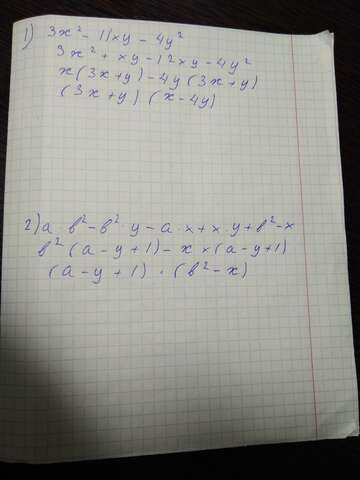 1) 3x² - 11xy - 4y²
3x² + xy - 12xy - 4y²
x(3x+y) - 4y(3x+y)
(3x+y) (x-4y)
2) a·b² - b²·y - a·x + x·y + b² - x
b²(a-y+1) - x×(a-y+1)
(a-y+1)·(b²-x)